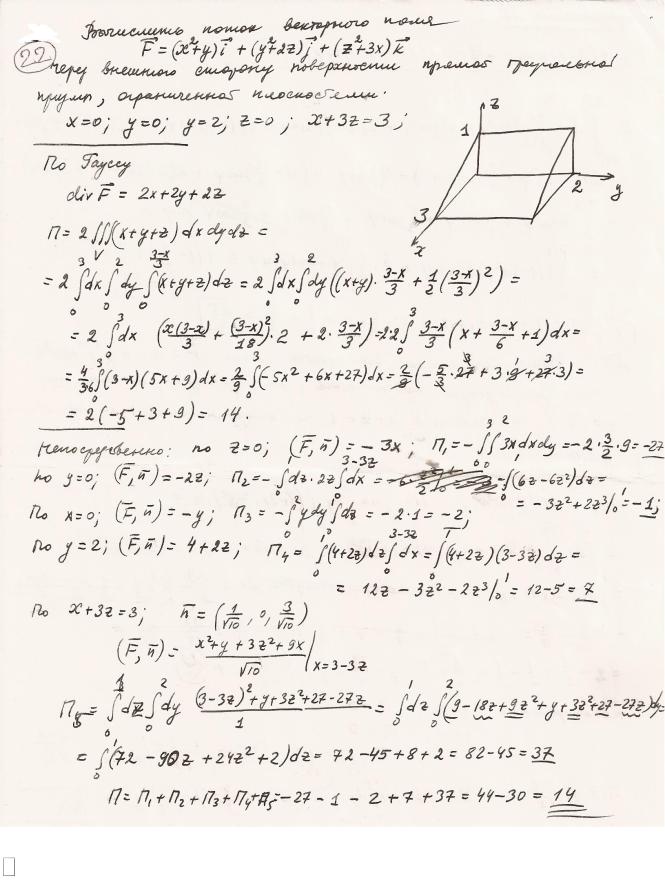 Вычислить поток векторного поля
22 F̄ = (x²+y)i̅ + (y²+2z)j̅ + (z²+3x)k̅
через внешнюю сторону поверхности прямой треугольной
призмы, ограниченной плоскостями:
x=0; y=0; y=2; z=0; x+3z=3;
z
1
2
y
3
x
По Гауссу
div F̄ = 2x+2y+2z
П = 2∭_V (x+y+z) dxdydz =
= 2 ∫₀³dx ∫₀²dy ∫₀^((3-x)/3) (x+y+z)dz = 2 ∫₀³dx ∫₀²dy ((x+y)·(3-x)/3 + 1/2((3-x)/3)²) =
= 2 ∫₀³dx (x(3-x)/3 + (3-x)²/18)·2 + 2·(3-x)/3) = 2·2 ∫₀³ (3-x)/3 (x + (3-x)/6 + 1)dx =
= 4/(3·6) ∫₀³(3-x)(5x+9)dx = 2/9 ∫₀³(-5x²+6x+27)dx = 2/9(-5/3·27 + 3·9 + 27·3) =
= 2(-5+3+9) = 14.
Непосредственно: по z=0; (F̄,n̄) = -3x; П₁ = -∫₀³∫₀² 3xdxdy = -2·3/2·9 = -27
по y=0; (F̄,n̄) = -2z; П₂ = -∫₀¹dz·2z ∫₀^(3-3z) dx = -∫₀¹(6z-6z²)dz =
= -3z²+2z³/₀¹ = -1;
По x=0; (F̄,n̄) = -y; П₃ = -∫₀²ydy ∫₀¹dz = -2·1 = -2;
По y=2; (F̄,n̄) = 4+2z; П₄ = ∫₀¹(4+2z)dz ∫₀^(3-3z) dx = ∫₀¹(4+2z)(3-3z)dz =
= 12z - 3z² - 2z³/₀¹ = 12-5 = 7
По x+3z=3; n̄ = (1/√10, 0, 3/√10)
(F̄,n̄) = (x²+y+3z²+9x)/√10 |x=3-3z
П₅ = ∫₀¹dz ∫₀²dy ((3-3z)²+y+3z²+27-27z)/1 = ∫₀¹dz ∫₀²(9-18z+9z²+y+3z²+27-27z)dy=
= ∫₀¹(72-90z+24z²+2)dz = 72-45+8+2 = 82-45 = 37
П = П₁+П₂+П₃+П₄+П₅ = -27-1-2+7+37 = 44-30 = 14